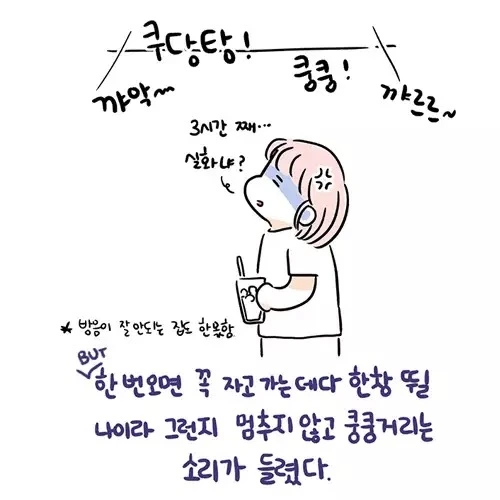 쿠당탕!
쿵쿵!
꺄악~
꺄르르~
3시간 째...
실화냐?
* 방음이 잘 안되는 집도 한몫함
BUT
한 번오면 꼭 자고 가는데다 한창 뛸
나이라 그런지 멈추지 않고 쿵쿵거리는
소리가 들렸다.